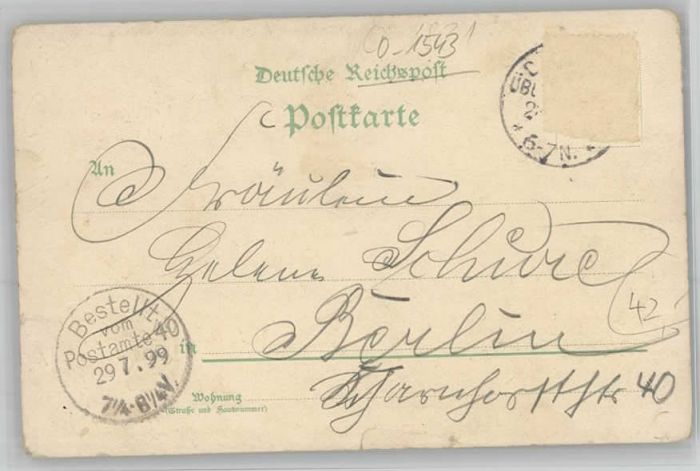 0-1543
Deutsche Reichspost
Postkarte
ÜBU
2
6-7N.
An
Fräulein
Helene
42
Berlin
in
Bestellt
vom
Postamte 40
29 7. 99
7¼-8¼V.
Wohnung
(Straße und Hausnummer)
Scharnhorststr 40